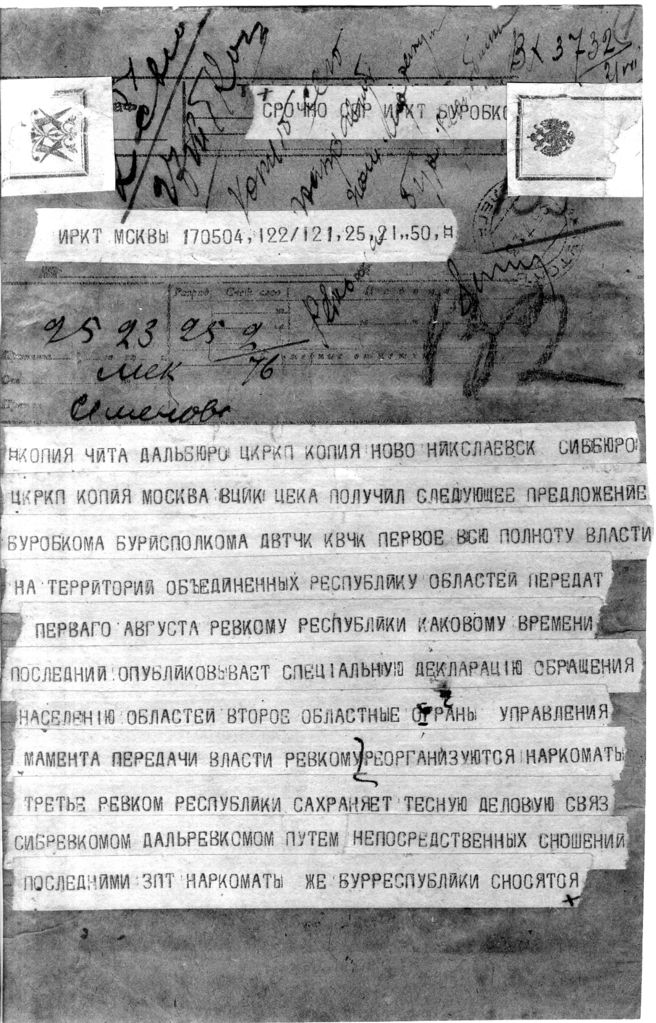 Вх 3732
СРОЧНО ИРКТ БУРОБКО
ИРКТ МОСКВЫ 170504,122/121,25,21,.50,Н
Разряд. Счет слов
25 23 25 2/76
мек
Семенова
132
НКОПИЯ ЧИТА ДАЛЬБЮРО ЦКРКП КОПИЯ НОВО НИКСЛАЕВСК СИББЮРО
ЦКРКП КОПИЯ МОСКВА ВЦИК ЦЕКА ПОЛУЧИЛ СЛЕДУЮЩЕЕ ПРЕДЛОЖЕНИЕ
БУРОБКОМА БУРИСПОЛКОМА ДВТЧК КВЧК ПЕРВОЕ ВСЮ ПОЛНОТУ ВЛАСТИ
НА ТЕРРИТОРИИ ОБЪЕДИНЕННЫХ РЕСПУБЛИКУ ОБЛАСТЕЙ ПЕРЕДАТ
ПЕРВАГО АВГУСТА РЕВКОМУ РЕСПУБЛИКИ КАКОВОМУ ВРЕМЕНИ
ПОСЛЕДНИЙ ОПУБЛИКОВЫВАЕТ СПЕЦІАЛЬНУЮ ДЕКЛАРАЦІЮ ОБРАЩЕНИЯ
НАСЕЛЕНІЮ ОБЛАСТЕЙ ВТОРОЕ ОБЛАСТНЫЕ ОРГАНЫ УПРАВЛЕНИЯ
МАМЕНТА ПЕРЕДАЧИ ВЛАСТИ РЕВКОМУ РЕОРГАНИЗУЮТСЯ НАРКОМАТЫ
ТРЕТЬЕ РЕВКОМ РЕСПУБЛИКИ САХРАНЯЕТ ТЕСНУЮ ДЕЛОВУЮ СВЯЗ
СИБРЕВКОМОМ ДАЛЬРЕВКОМОМ ПУТЕМ НЕПОСРЕДСТВЕННЫХ СНОШЕНИЙ
ПОСЛЕДНИМИ ЗПТ НАРКОМАТЫ ЖЕ БУРРЕСПУБЛИКИ СНОСЯТСЯ